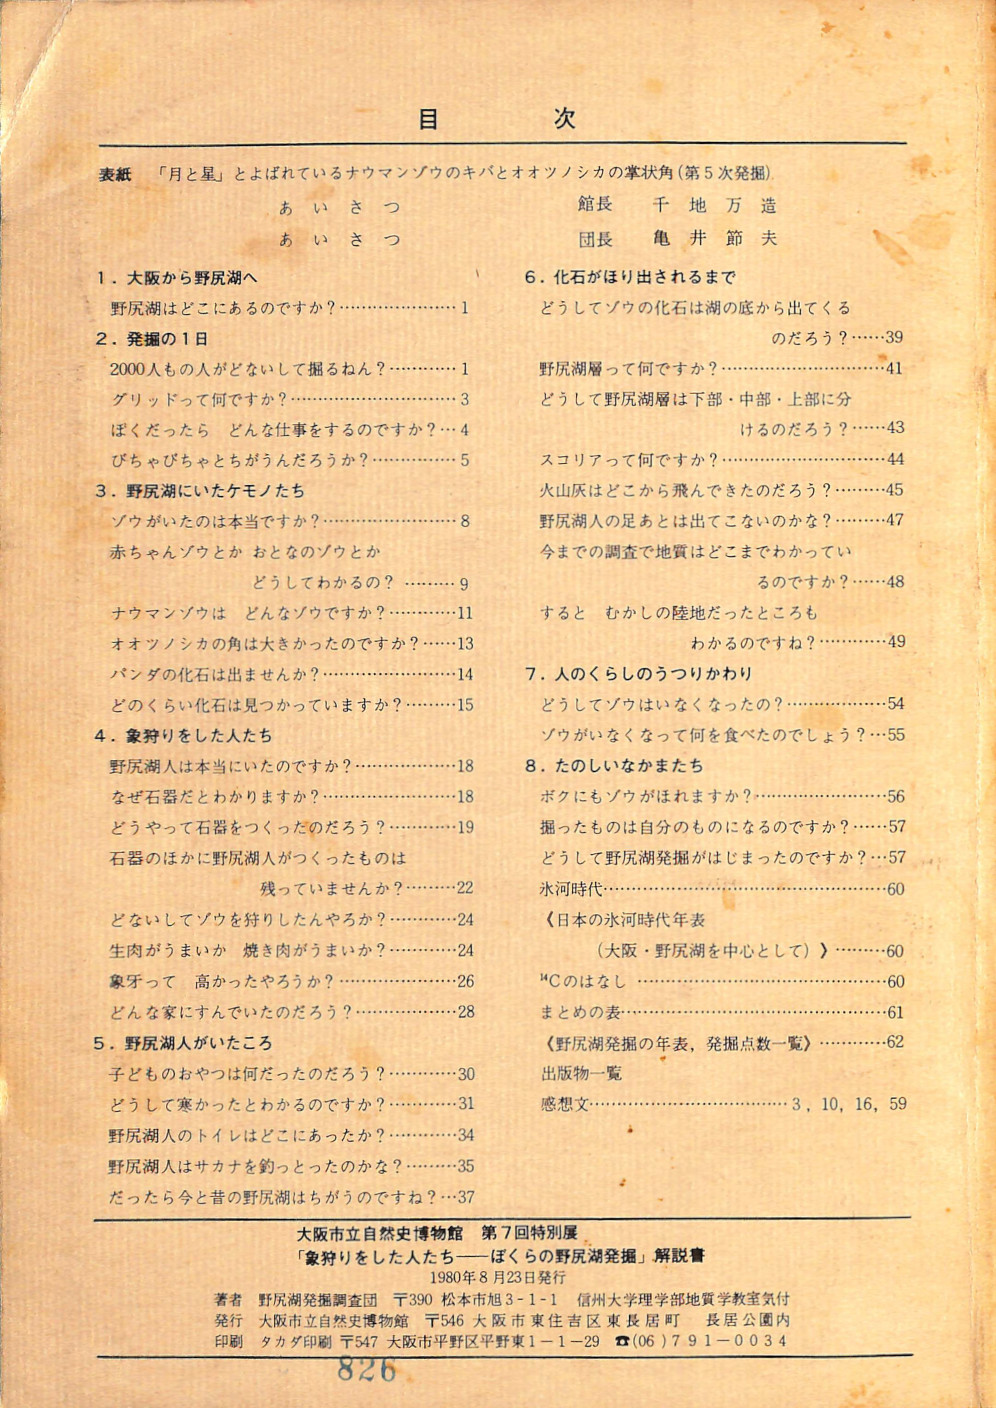 目　次
表紙　「月と星」とよばれているナウマンゾウのキバとオオツノシカの掌状角(第5次発掘)
あいさつ　館長　千地万造
あいさつ　団長　亀井節夫
1．大阪から野尻湖へ
野尻湖はどこにあるのですか？…………………1
2．発掘の1日
2000人もの人がどないして掘るねん？…………1
グリッドって何ですか？…………………………3
ぼくだったら　どんな仕事をするのですか？…4
びちゃびちゃとちがうんだろうか？……………5
3．野尻湖にいたケモノたち
ゾウがいたのは本当ですか？……………………8
赤ちゃんゾウとか おとなのゾウとか
どうしてわかるの？ ………9
ナウマンゾウは　どんなゾウですか？…………11
オオツノシカの角は大きかったのですか？……13
パンダの化石は出ませんか？……………………14
どのくらい化石は見つかっていますか？………15
4．象狩りをした人たち
野尻湖人は本当にいたのですか？………………18
なぜ石器だとわかりますか？……………………18
どうやって石器をつくったのだろう？…………19
石器のほかに野尻湖人がつくったものは
残っていませんか？………22
どないしてゾウを狩りしたんやろか？…………24
生肉がうまいか　焼き肉がうまいか？…………24
象牙って　高かったやろうか？…………………26
どんな家にすんでいたのだろう？………………28
5．野尻湖人がいたころ
子どものおやつは何だったのだろう？…………30
どうして寒かったとわかるのですか？…………31
野尻湖人のトイレはどこにあったか？…………34
野尻湖人はサカナを釣っとったのかな？………35
だったら今と昔の野尻湖はちがうのですね？…37
6．化石がほり出されるまで
どうしてゾウの化石は湖の底から出てくる
のだろう？……39
野尻湖層って何ですか？…………………………41
どうして野尻湖層は下部・中部・上部に分
けるのだろう？……43
スコリアって何ですか？…………………………44
火山灰はどこから飛んできたのだろう？………45
野尻湖人の足あとは出てこないのかな？………47
今までの調査で地質はどこまでわかってい
るのですか？……48
すると　むかしの陸地だったところも
わかるのですね？…………49
7．人のくらしのうつりかわり
どうしてゾウはいなくなったの？………………54
ゾウがいなくなって何を食べたのでしょう？…55
8．たのしいなかまたち
ボクにもゾウがほれますか？……………………56
掘ったものは自分のものになるのですか？……57
どうして野尻湖発掘がはじまったのですか？…57
氷河時代……………………………………………60
《日本の氷河時代年表
(大阪・野尻湖を中心として)》………60
¹⁴Cのはなし ………………………………………60
まとめの表…………………………………………61
《野尻湖発掘の年表，発掘点数一覧》…………62
出版物一覧
感想文………………………………3，10，16，59
大阪市立自然史博物館　第7回特別展
「象狩りをした人たち――ぼくらの野尻湖発掘」解説書
1980年8月23日発行
著者　野尻湖発掘調査団　〒390 松本市旭3-1-1　信州大学理学部地質学教室気付
発行　大阪市立自然史博物館　〒546 大阪市東住吉区東長居町　長居公園内
印刷　タカダ印刷 〒547 大阪市平野区平野東1－1－29　☎(06)791－0034
826